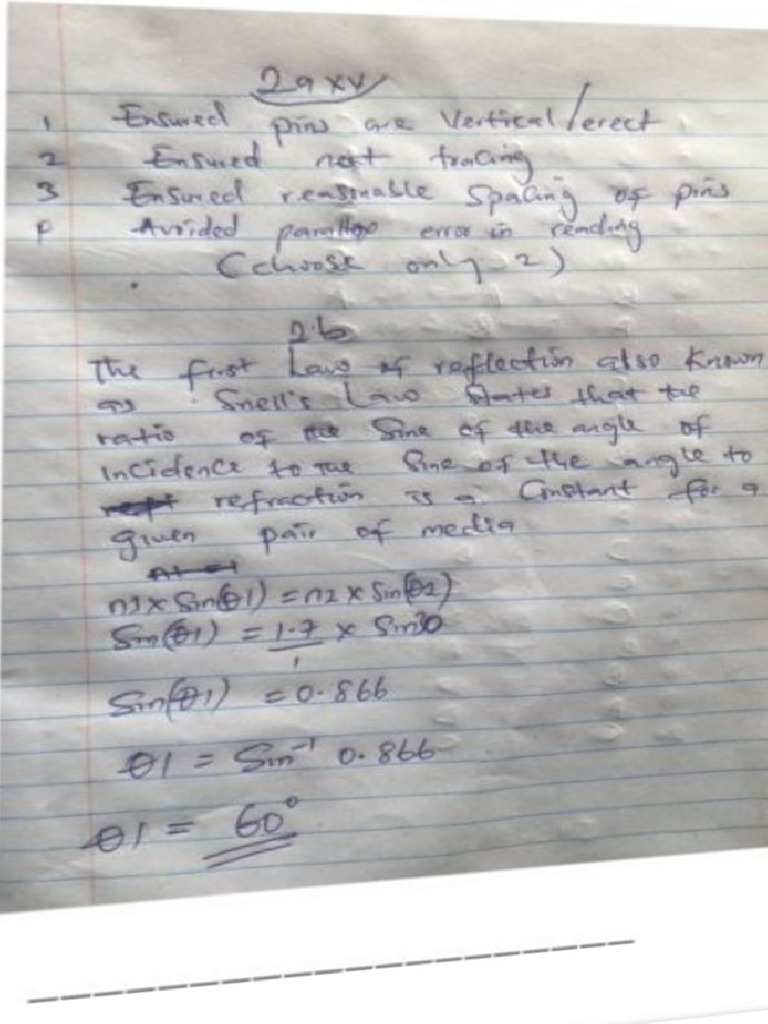 2a xv
1 Ensured pins are Vertical/erect
2 Ensured neat tracing
3 Ensured reasonable Spacing of pins
Avoided parallax error in reading
(choose only 2)
2b
The first Law of reflection also Known
as Snell's Law States that the
ratio of the Sine of the angle of
incidence to the Sine of the angle to
refraction is a Constant for a
given pair of media
n1 x Sin(θ1) = n2 x Sin(θ2)
Sin(θ1) = 1.7 x Sin30
1
Sin(θ1) = 0.866
θ1 = Sin⁻¹ 0.866
θ1 = 60°